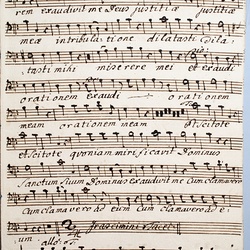 rem exaudivit me Deus justitiæ justitiæ
meæ intribulatione dilatasti Dila,
tasti mihi miserere mei et exaudi
orationem exaudi orationem
meam orationem meam et scitote
et scitote quoniam mirificavit Dom:
Sanctum suum Dominus exaudivit me Cum clamavero
Cum clamavero ad eum Cum clamavero ad e,
um allo: